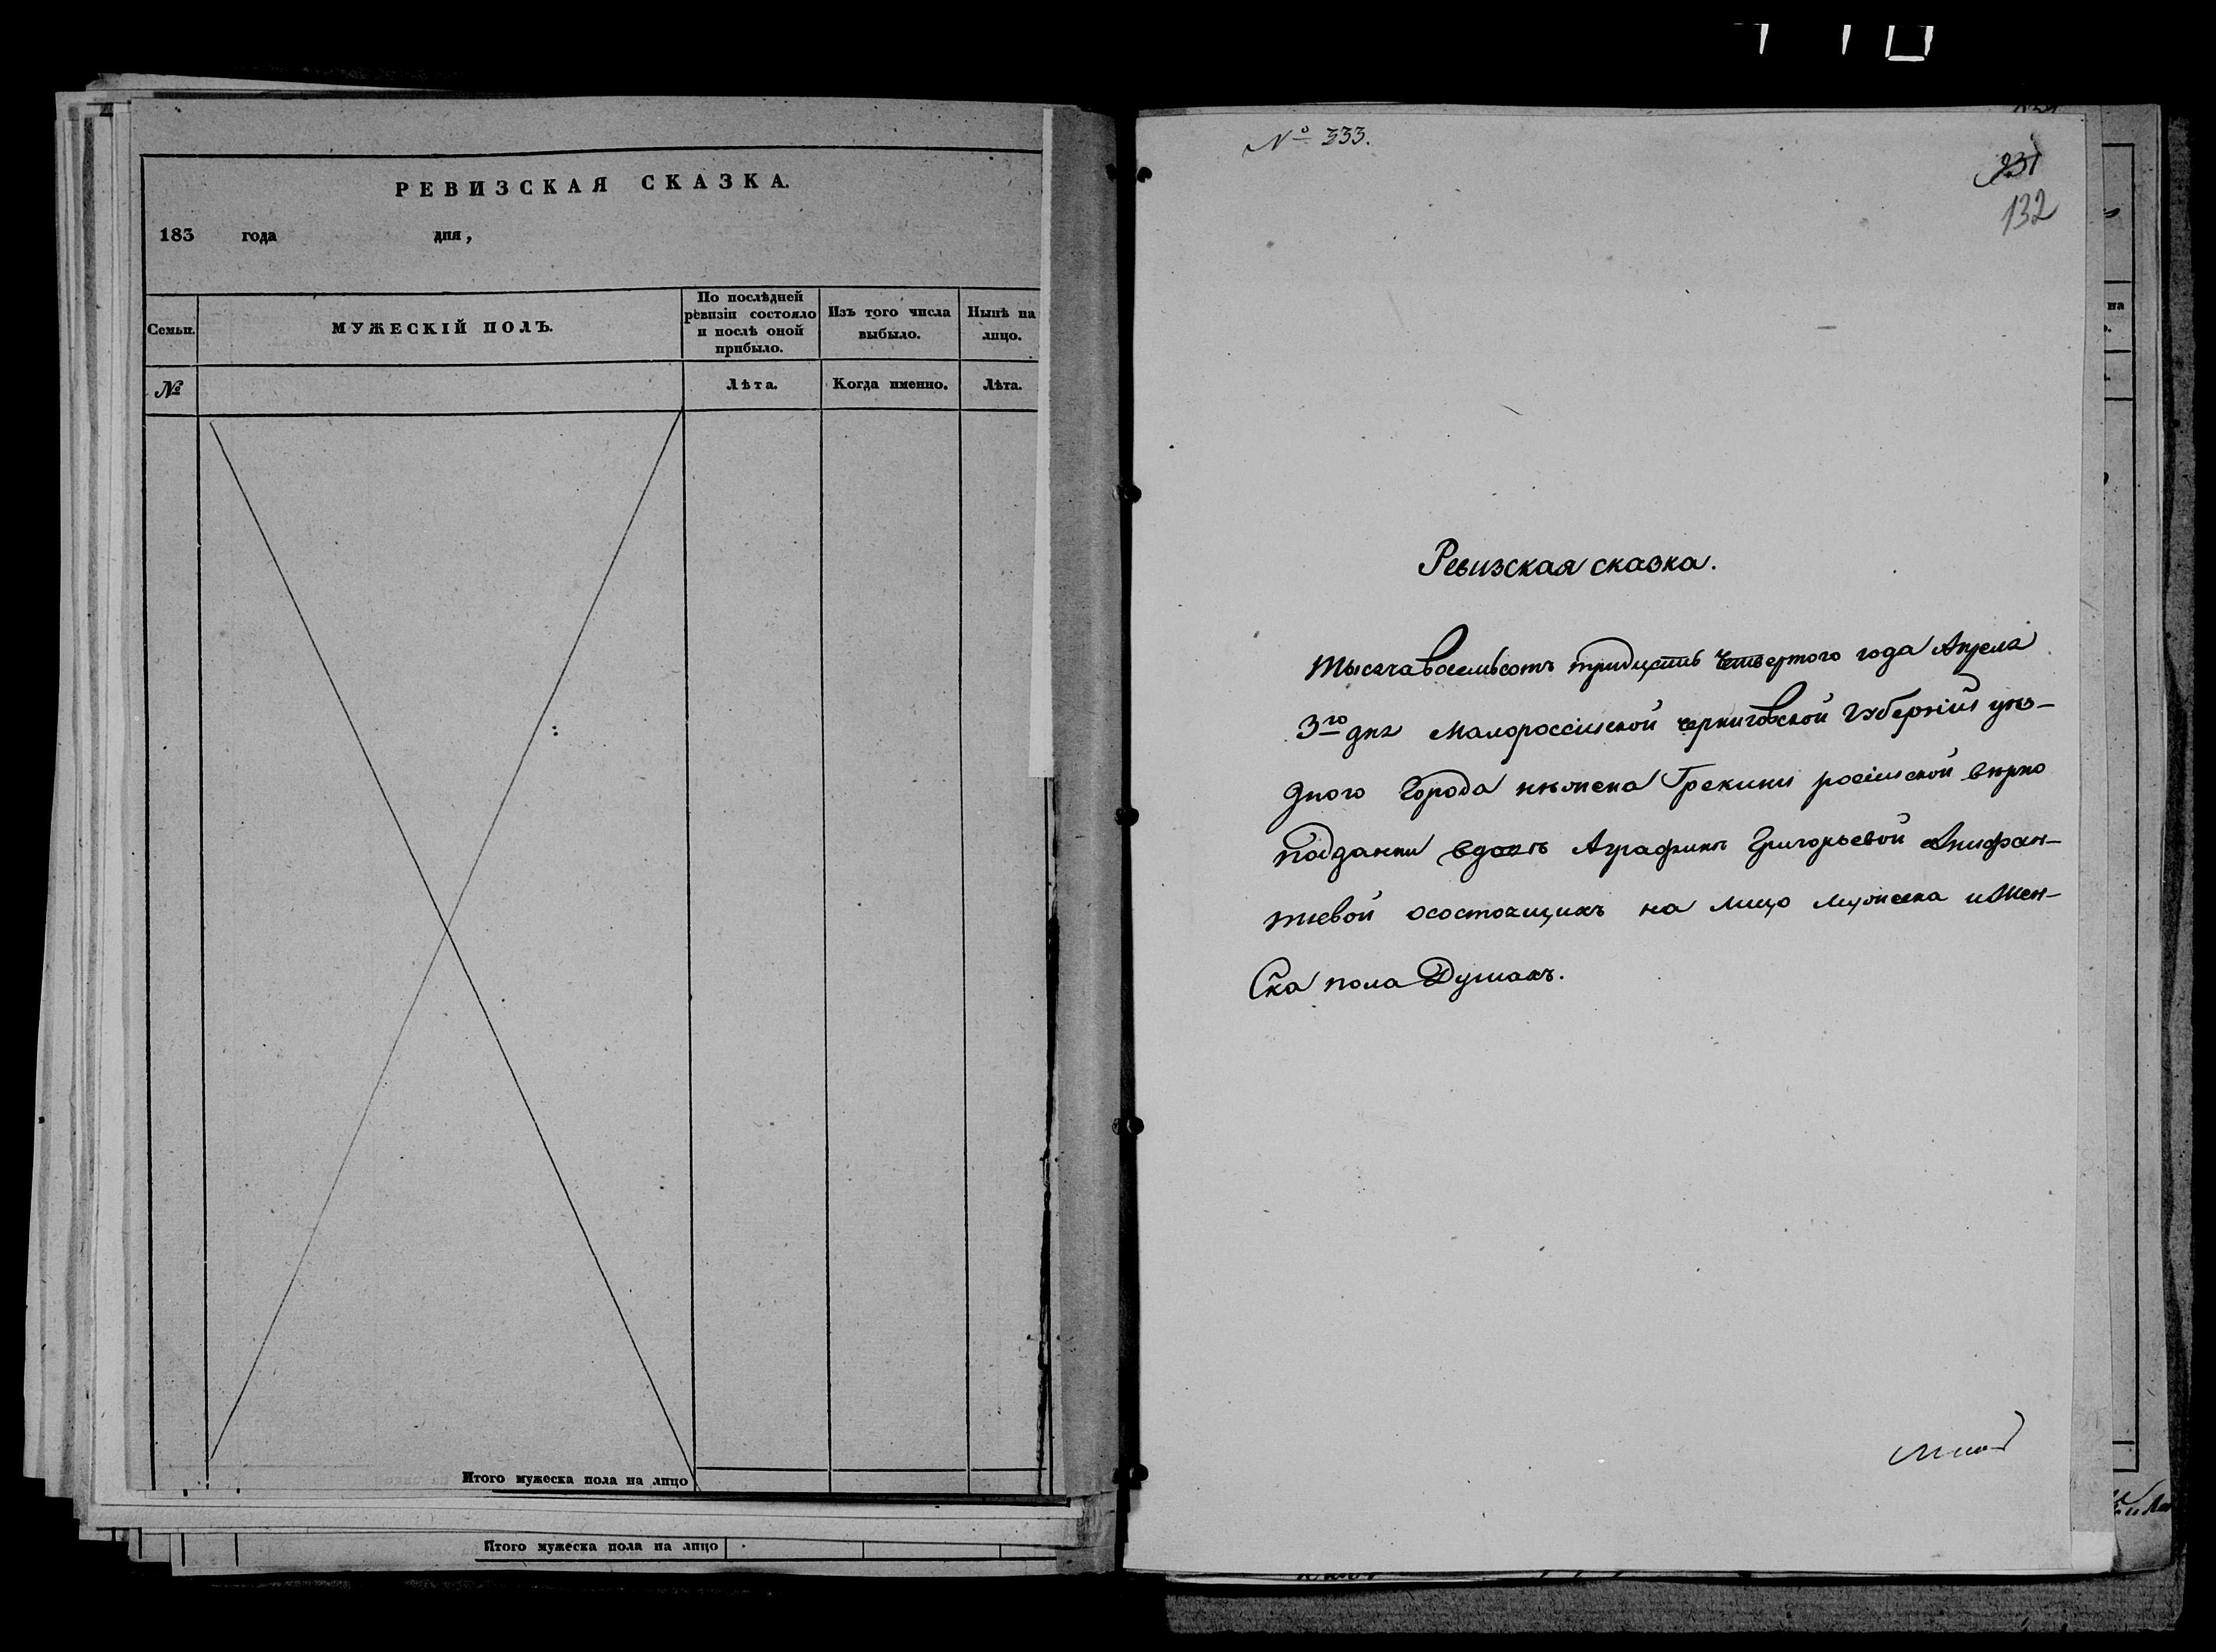 РЕВИЗСКАЯ СКАЗКА.
183 года дня,
Семьи.
МУЖЕСКІЙ ПОЛЪ.
По послѣдней ревизіи состояло и послѣ оной прибыло.
Изъ того числа выбыло.
Нынѣ на лицо.
№
Лѣта.
Когда именно.
Лѣта.
Итого мужеска пола на лицо
Итого мужеска пола на лицо
№ 333.
231
132
Ревизская сказка.
Тысяча восемьсотъ тридцать четвертого года Апреля
3го дня Малороссійской черниговской Губерніи уѣз-
дного Города нѣжена Грекини російской вѣрно
подданки вдовѣ Аграфины Григорьевой Анифан-
тьевой осостоящихъ на лицо мужеска и Жен-
Ска пола Душахъ.
на